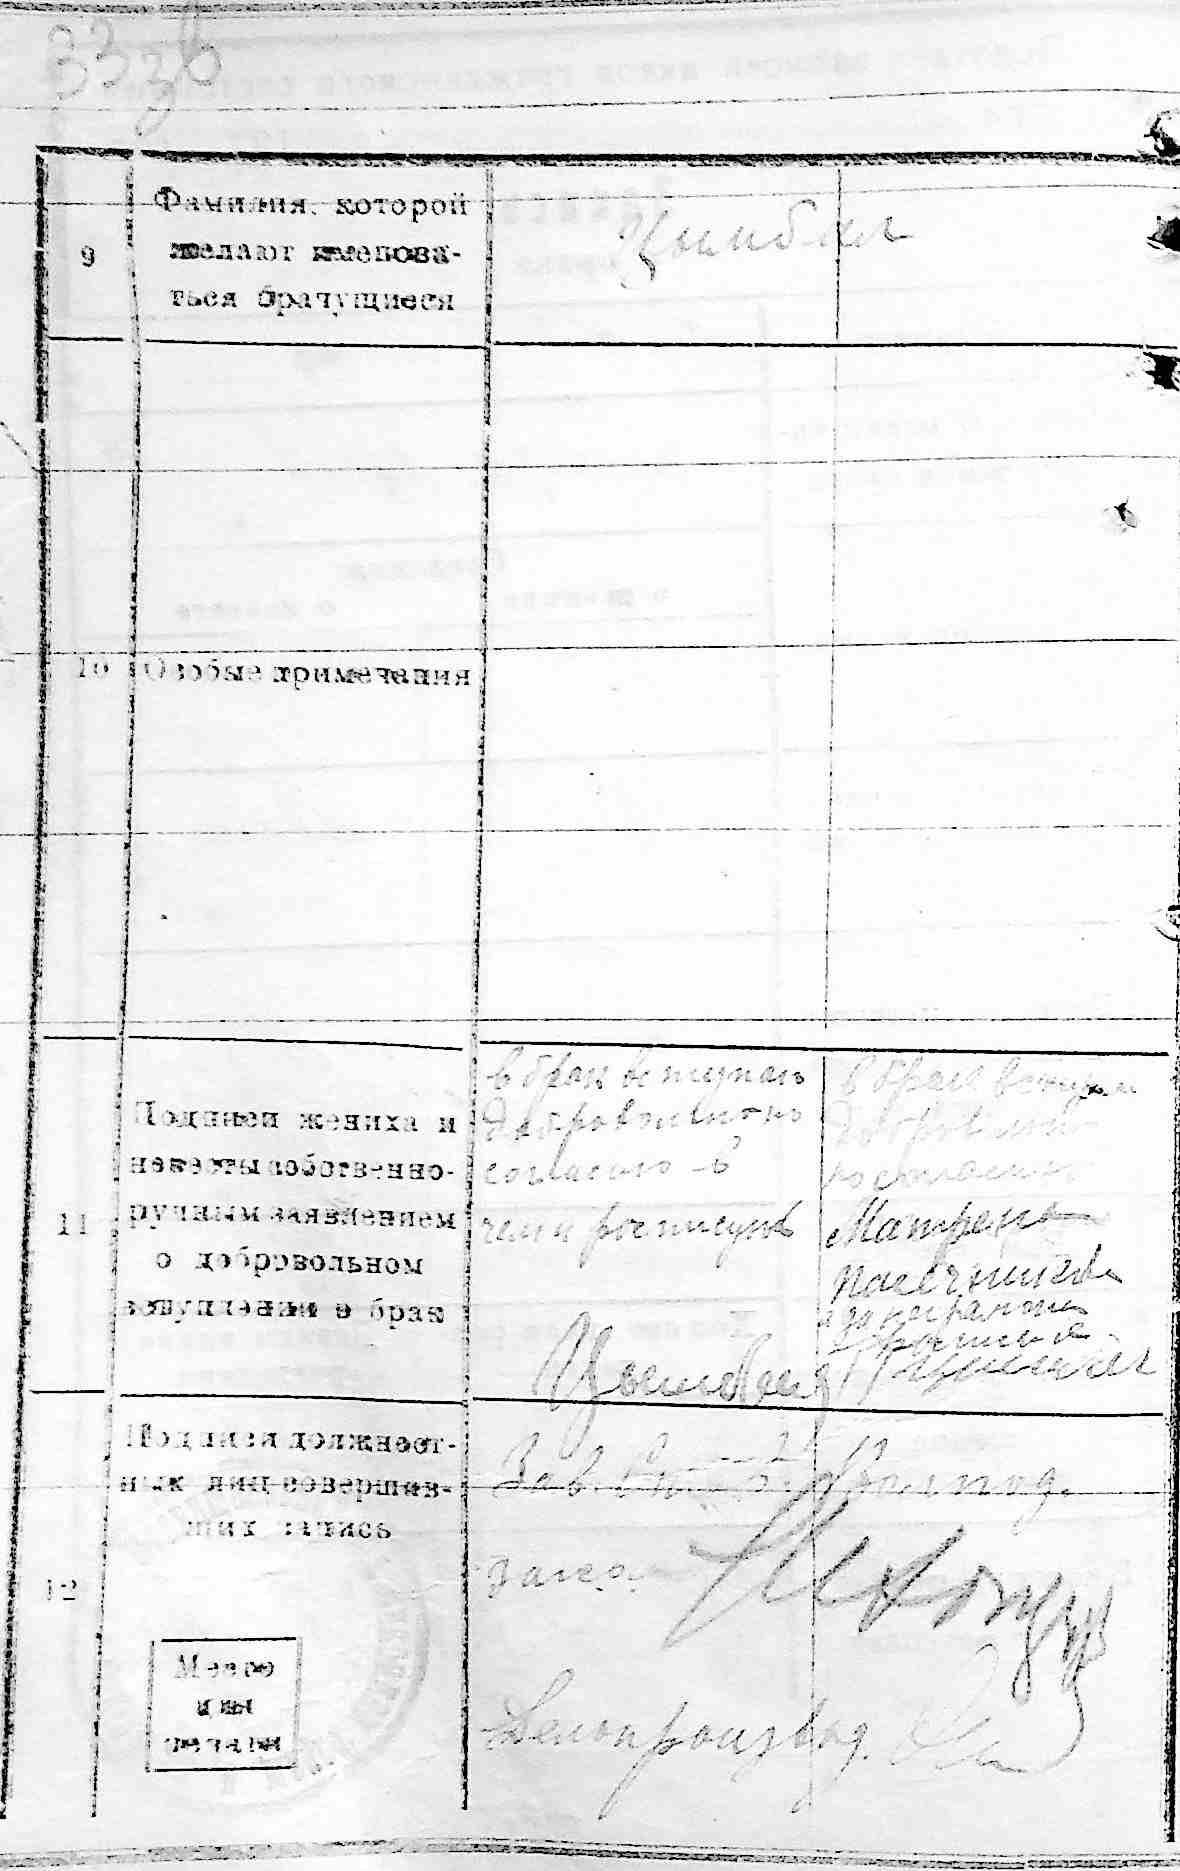 33
9
Фамилия, которой
желают именова-
ться брачущиеся
Цымбал
10
Особые примечания
11
Подписи жениха и
невесты собственно-
ручным заявлением
о добровольном
вступлении в брак
в брак вступаю
добровольно
согласно в
чем и росписуюсь
в брак вступаю
добровольно
Матрена
Пасечникова
12
Подписи должност-
ных лиц совершив-
ших запись
Зав.
загса
Делопроизвод.
Место
для
печати